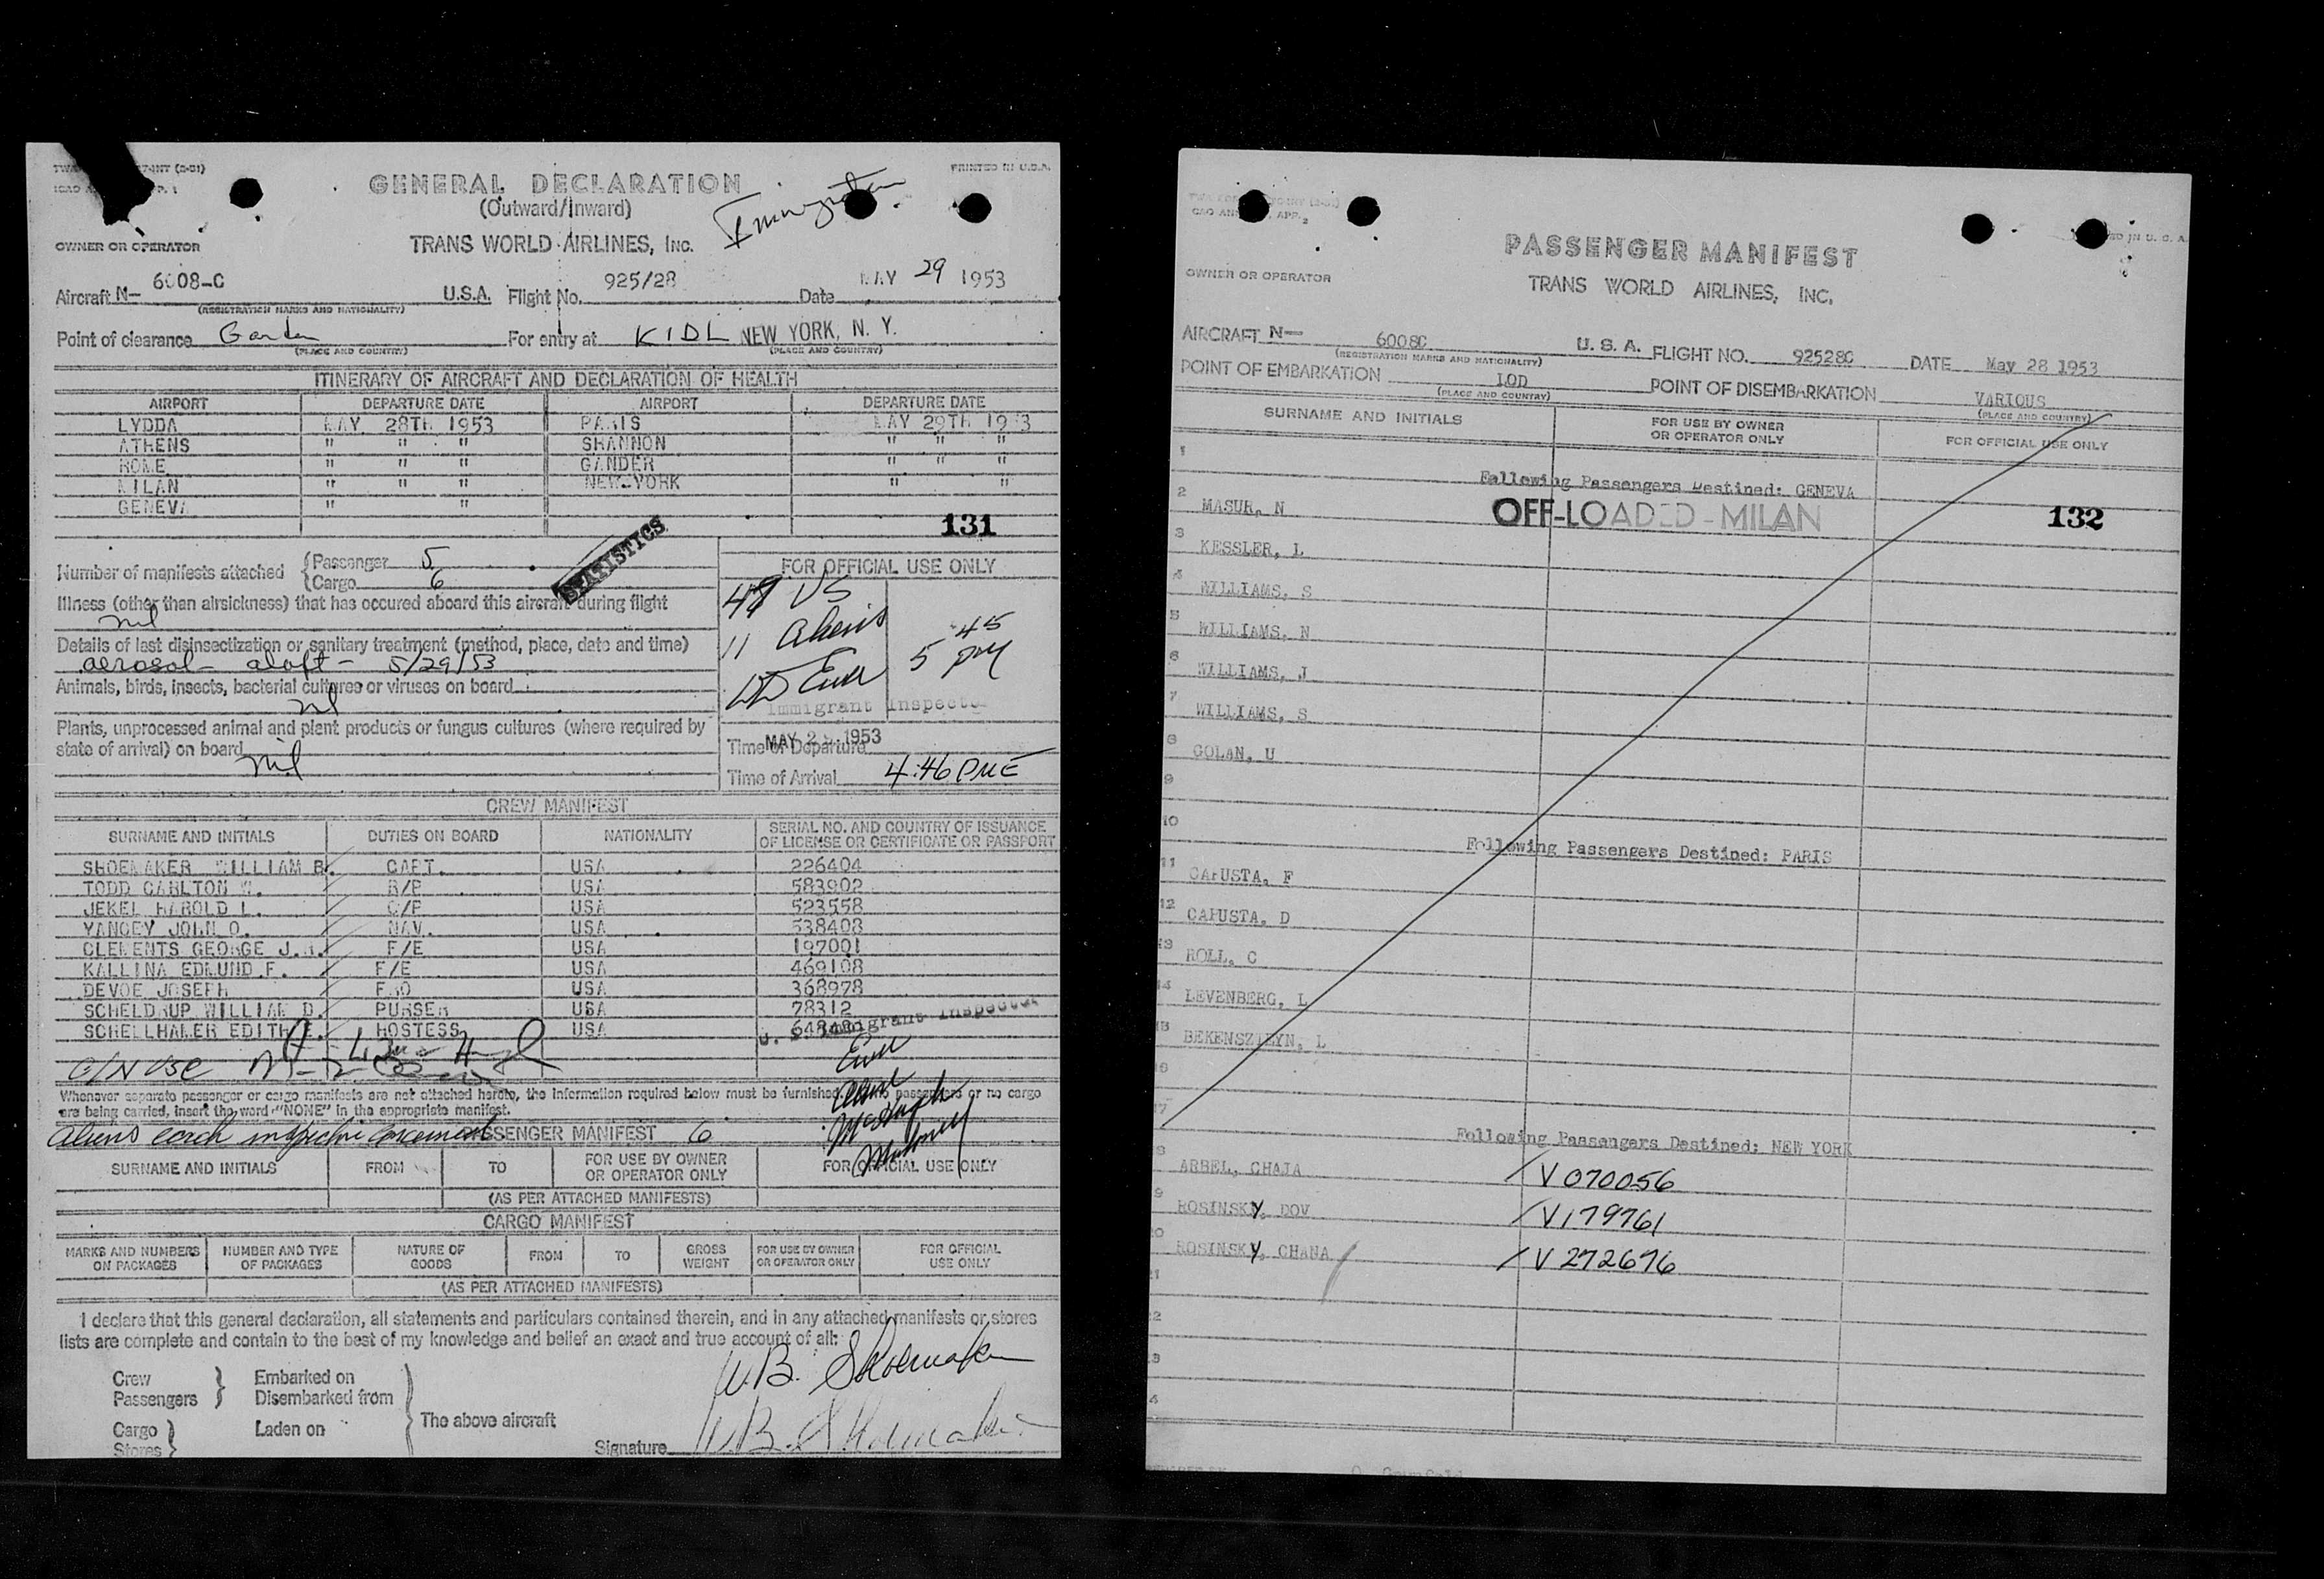 GENERAL DECLARATION
(Outward/Inward)
PRINTED IN U.S.A.
Immigration
OWNER OR OPERATOR
TRANS WORLD AIRLINES, INC.
Aircraft N- 6008-C U.S.A. Flight No. 925/28 Date MAY 29 1953
(REGISTRATION MARKS AND NATIONALITY)
Point of clearance Gander For entry at KIDL NEW YORK, N. Y.
(PLACE AND COUNTRY) (PLACE AND COUNTRY)
ITINERARY OF AIRCRAFT AND DECLARATION OF HEALTH
AIRPORT DEPARTURE DATE AIRPORT DEPARTURE DATE
LYDDA MAY 28TH 1953 PARIS MAY 29TH 1953
ATHENS " " " SHANNON " " "
ROME " " " GANDER " " "
MILAN " " " NEW-YORK " "
GENEVA " "
131
Number of manifests attached {Passenger 5
{Cargo 6
STATISTICS
Illness (other than airsickness) that has occured aboard this aircraft during flight
nil
Details of last disinsectization or sanitary treatment (method, place, date and time)
aerosol - aloft - 5/29/53
Animals, birds, insects, bacterial cultures or viruses on board
nil
Plants, unprocessed animal and plant products or fungus cultures (where required by
state of arrival) on board
nil
FOR OFFICIAL USE ONLY
47 US
11 Aliens
5 45 PM
Immigrant Inspector
Time of Departure
MAY 2 1953
Time of Arrival 4:46 PM E
CREW MANIFEST
SURNAME AND INITIALS DUTIES ON BOARD NATIONALITY SERIAL NO. AND COUNTRY OF ISSUANCE
OF LICENSE OR CERTIFICATE OR PASSPORT
SHOEMAKER WILLIAM B. CAPT. USA 226404
TODD CARLTON W. R/P USA 583902
JEKEL HAROLD L. C/P USA 523558
YANCEY JOHN O. NAV. USA 538408
CLEMENTS GEORGE J. F/E USA 197001
KALLINA EDMUND F. F/E USA 469108
DEVOE JOSEPH USA 368978
SCHELDRUP WILLIAM D. PURSER USA 78312
SCHELLHAMER EDITH E. HOSTESS USA
U. S. Immigrant Inspector
Whenever separate passenger or cargo manifests are not attached hereto, the information required below must be furnished. passengers or no cargo
are being carried, insert the word "NONE" in the appropriate manifest.
PASSENGER MANIFEST 6
SURNAME AND INITIALS FROM TO FOR USE BY OWNER
OR OPERATOR ONLY FOR OFFICIAL USE ONLY
(AS PER ATTACHED MANIFESTS)
CARGO MANIFEST
MARKS AND NUMBERS
ON PACKAGES NUMBER AND TYPE
OF PACKAGES NATURE OF
GOODS FROM TO GROSS
WEIGHT FOR USE BY OWNER
OR OPERATOR ONLY FOR OFFICIAL
USE ONLY
(AS PER ATTACHED MANIFESTS)
I declare that this general declaration, all statements and particulars contained therein, and in any attached manifests or stores
lists are complete and contain to the best of my knowledge and belief an exact and true account of all:
W.B. Shoemaker
Crew
Passengers } Embarked on
Disembarked from
Cargo
Stores } Laden on
The above aircraft
Signature W.B. Shoemaker
PASSENGER MANIFEST
OWNER OR OPERATOR
TRANS WORLD AIRLINES, INC.
AIRCRAFT N- 6008C U. S. A. FLIGHT NO. 92528C DATE May 28 1953
(REGISTRATION MARKS AND NATIONALITY)
POINT OF EMBARKATION LOD POINT OF DISEMBARKATION VARIOUS
(PLACE AND COUNTRY) (PLACE AND COUNTRY)
SURNAME AND INITIALS FOR USE BY OWNER
OR OPERATOR ONLY FOR OFFICIAL USE ONLY
1
Following Passengers Destined: GENEVA
2 MASUR, N OFF-LOADED - MILAN 132
3 KESSLER, L
4 WILLIAMS, S
5 WILLIAMS, N
6 WILLIAMS, J
7 WILLIAMS, S
8 GOLAN, U
9
10
Following Passengers Destined: PARIS
11 CAPUSTA, F
12 CAPUSTA, D
13 ROLL, C
14 LEVENBERG, L
15 BEKENSZTEYN, L
16
17
Following Passengers Destined: NEW YORK
ARBEL, CHAJA V 070056
ROSINSKY, DOV V179761
ROSINSKY, CHANA V 272676